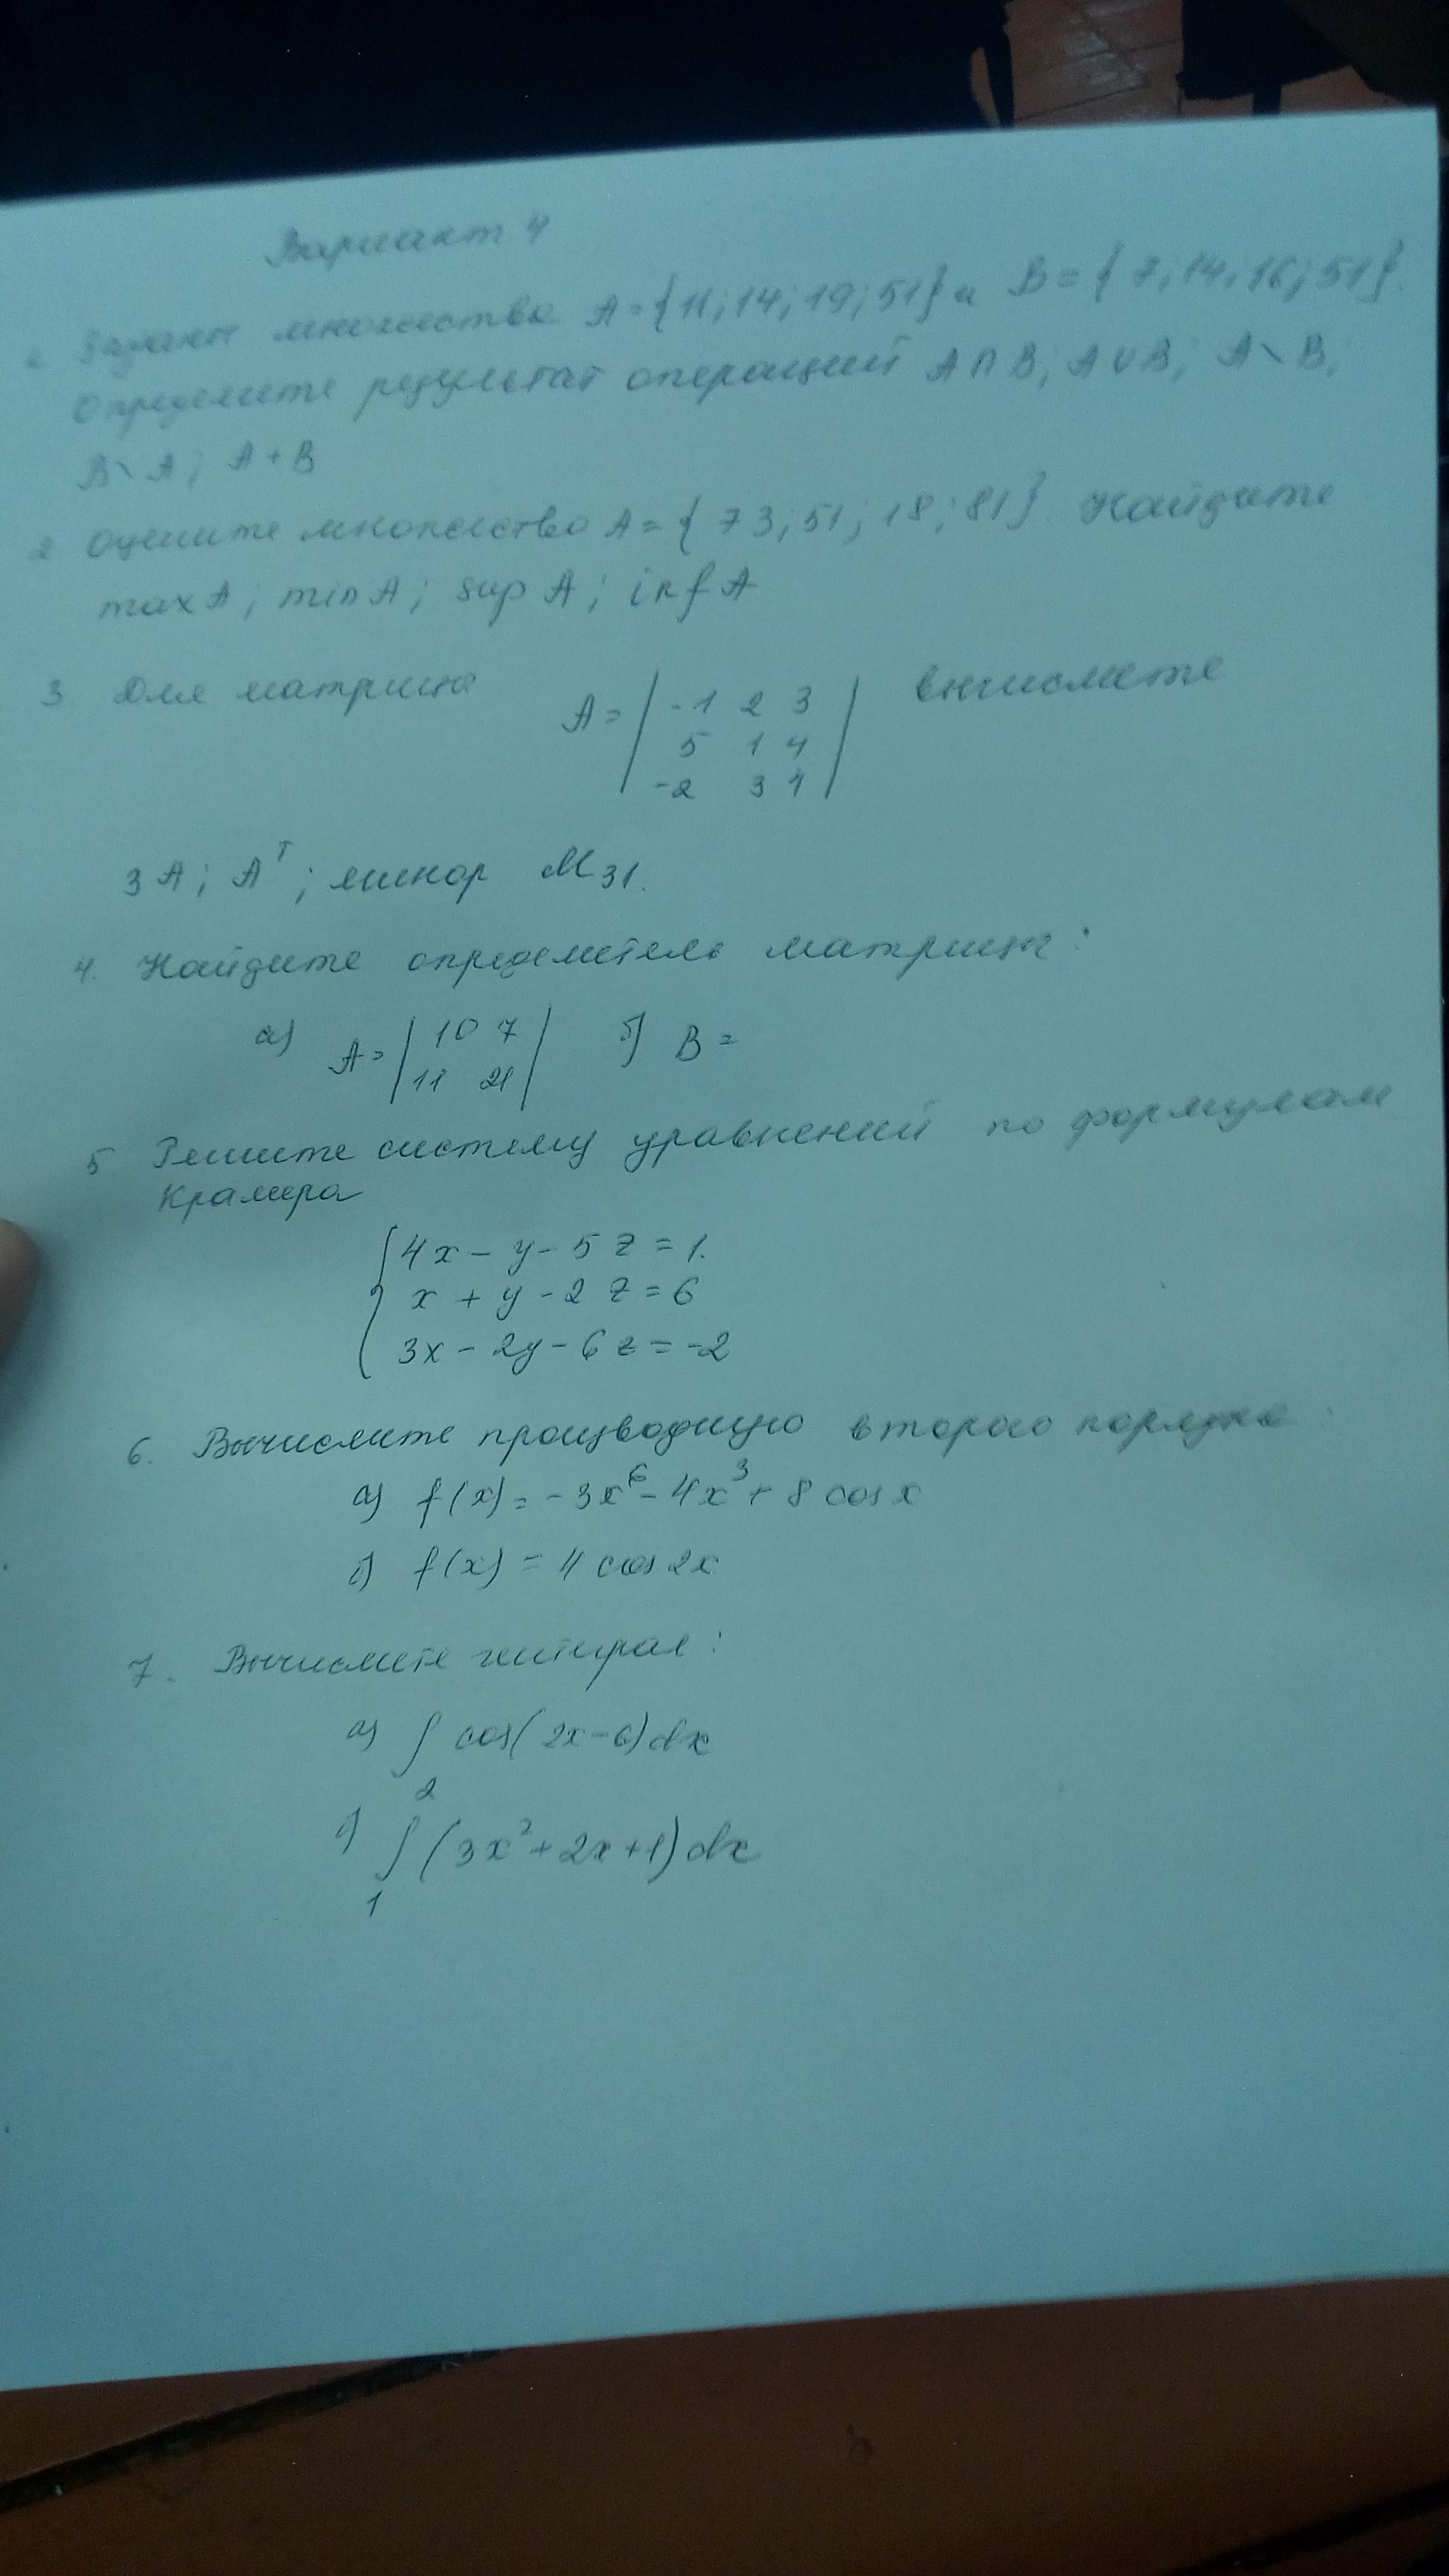 Вариант 4
Заданы множества A={11;14;19;51} и B={7;14;16;51}.
Определите результат операций A∩B; A∪B; A\B;
B\A; A+B
2 Оцените множество A={73;51;18;81}. Найдите
max A; min A; sup A; inf A
3 Для матрицы A=| -1 2 3 | вычислите
5 1 4
-2 3 1
3A; Aᵀ; минор M₃₁.
4. Найдите определитель матрицы:
а) A=| 10 7 | б) B=
11 21
5 Решите систему уравнений по формулам
Крамера
{ 4x - y - 5z = 1.
x + y - 2z = 6
3x - 2y - 6z = -2
6. Вычислите производную второго порядка:
а) f(x) = -3x⁶ - 4x³ + 8 cos x
б) f(x) = 4 cos 2x
7. Вычислите интеграл:
а) ∫ cos(2x-6)dx
2
б) ∫ (3x²+2x+1)dx
1